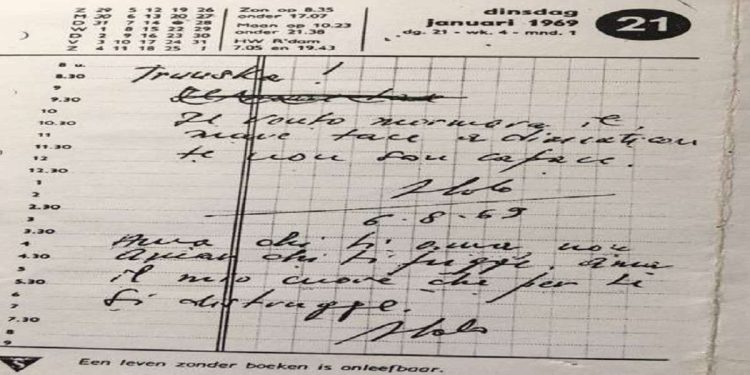 Z 29 5 12 19 26
M 30 6 13 20 27
D 31 7 14 28
W 1 8 15 22 29
D 2 9 16 23 30
V 3 10 17 24 31
Z 4 11 18 25 1
Zon op 8.35
onder 17.07
Maan op 10.23
onder 21.38
HW R'dam
7.05 en 19.43
dinsdag
januari 1969
dg. 21 - wk. 4 - mnd. 1
21
8 u.
8.30
9
9.30
10
10.30
11
11.30
12
12.30
1
2
2.30
3
3.30
4
4.30
5
5.30
6
7
7.30
8
9
Truuska !
Il vento mormora il
mare tace a
te non son capace.
Italo
6.8.69
Ama chi ti ama, non
amar chi ti fugge, ama
il mio cuore che per te
si distrugge.
Italo
Een leven zonder boeken is onleefbaar.